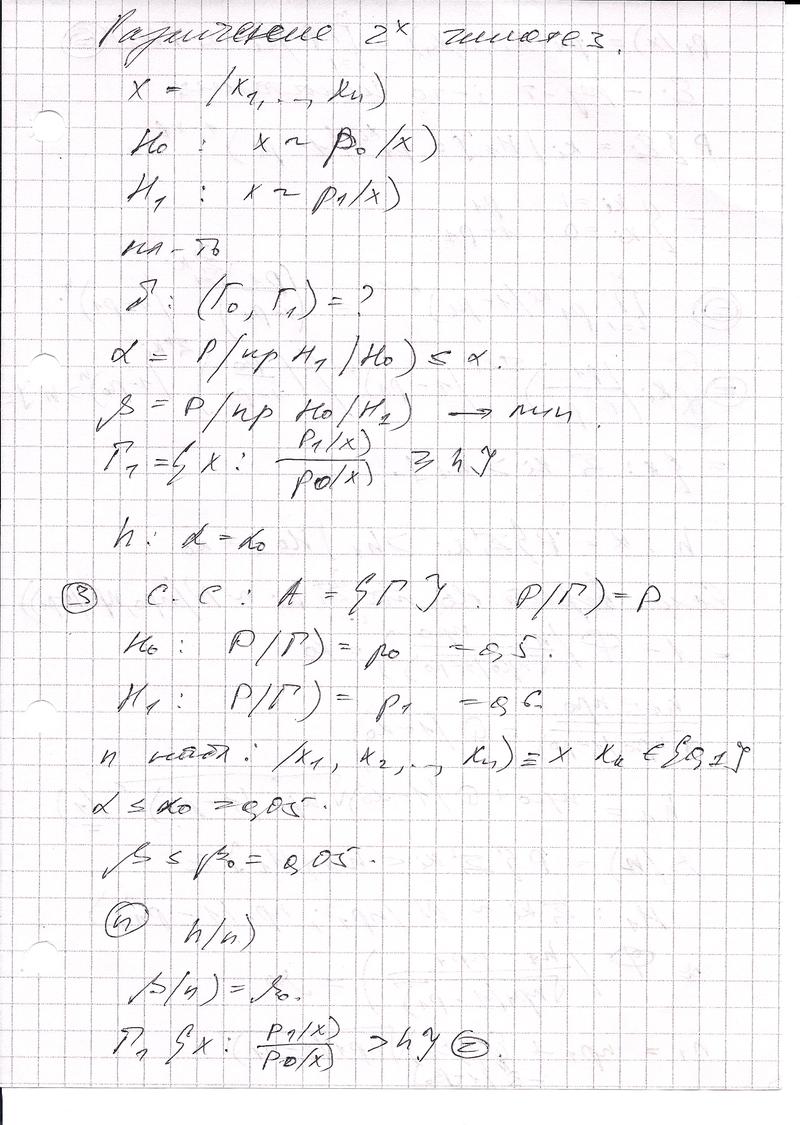 Различение 2х гипотез.
x = (x₁, .., xₙ)
H₀ : x ~ p₀(x)
H₁ : x ~ p₁(x)
δ: (Γ₀, Γ₁) = ?
α = P(пр H₁ | H₀) ≤ α.
β = P(пр H₀ | H₁) → min.
Γ₁ = {x : p₁(x) / p₀(x) ≥ h}
h : α = α₀
③ С-С : A = {Г}. P(Г) = p
H₀ : P(Г) = p₀ = 0,5.
H₁ : P(Г) = p₁ = 0,6.
n : (x₁, x₂, .., xₙ) ≡ x xₖ ∈ {0,1}
α ≤ α₀ = 0,05.
β ≤ β₀ = 0,05.
ⓝ h(n)
β(n) = β₀.
Γ₁ {x : p₁(x) / p₀(x) > h} ⊜.